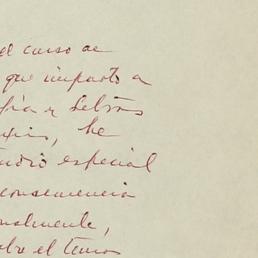 el curso de
que imparto a
fía y Letras
, he
udio especial
consecuencia
nalmente,
obre el temas